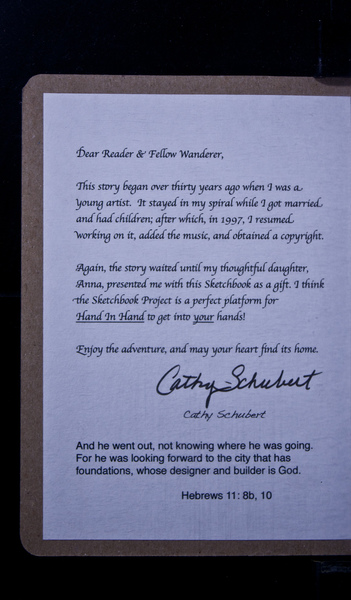 Dear Reader & Fellow Wanderer,
This story began over thirty years ago when I was a
young artist. It stayed in my spiral while I got married
and had children; after which, in 1997, I resumed
working on it, added the music, and obtained a copyright.
Again, the story waited until my thoughtful daughter,
Anna, presented me with this Sketchbook as a gift. I think
the Sketchbook Project is a perfect platform for
Hand In Hand to get into your hands!
Enjoy the adventure, and may your heart find its home.
Cathy Schubert
Cathy Schubert
And he went out, not knowing where he was going.
For he was looking forward to the city that has
foundations, whose designer and builder is God.
Hebrews 11: 8b, 10